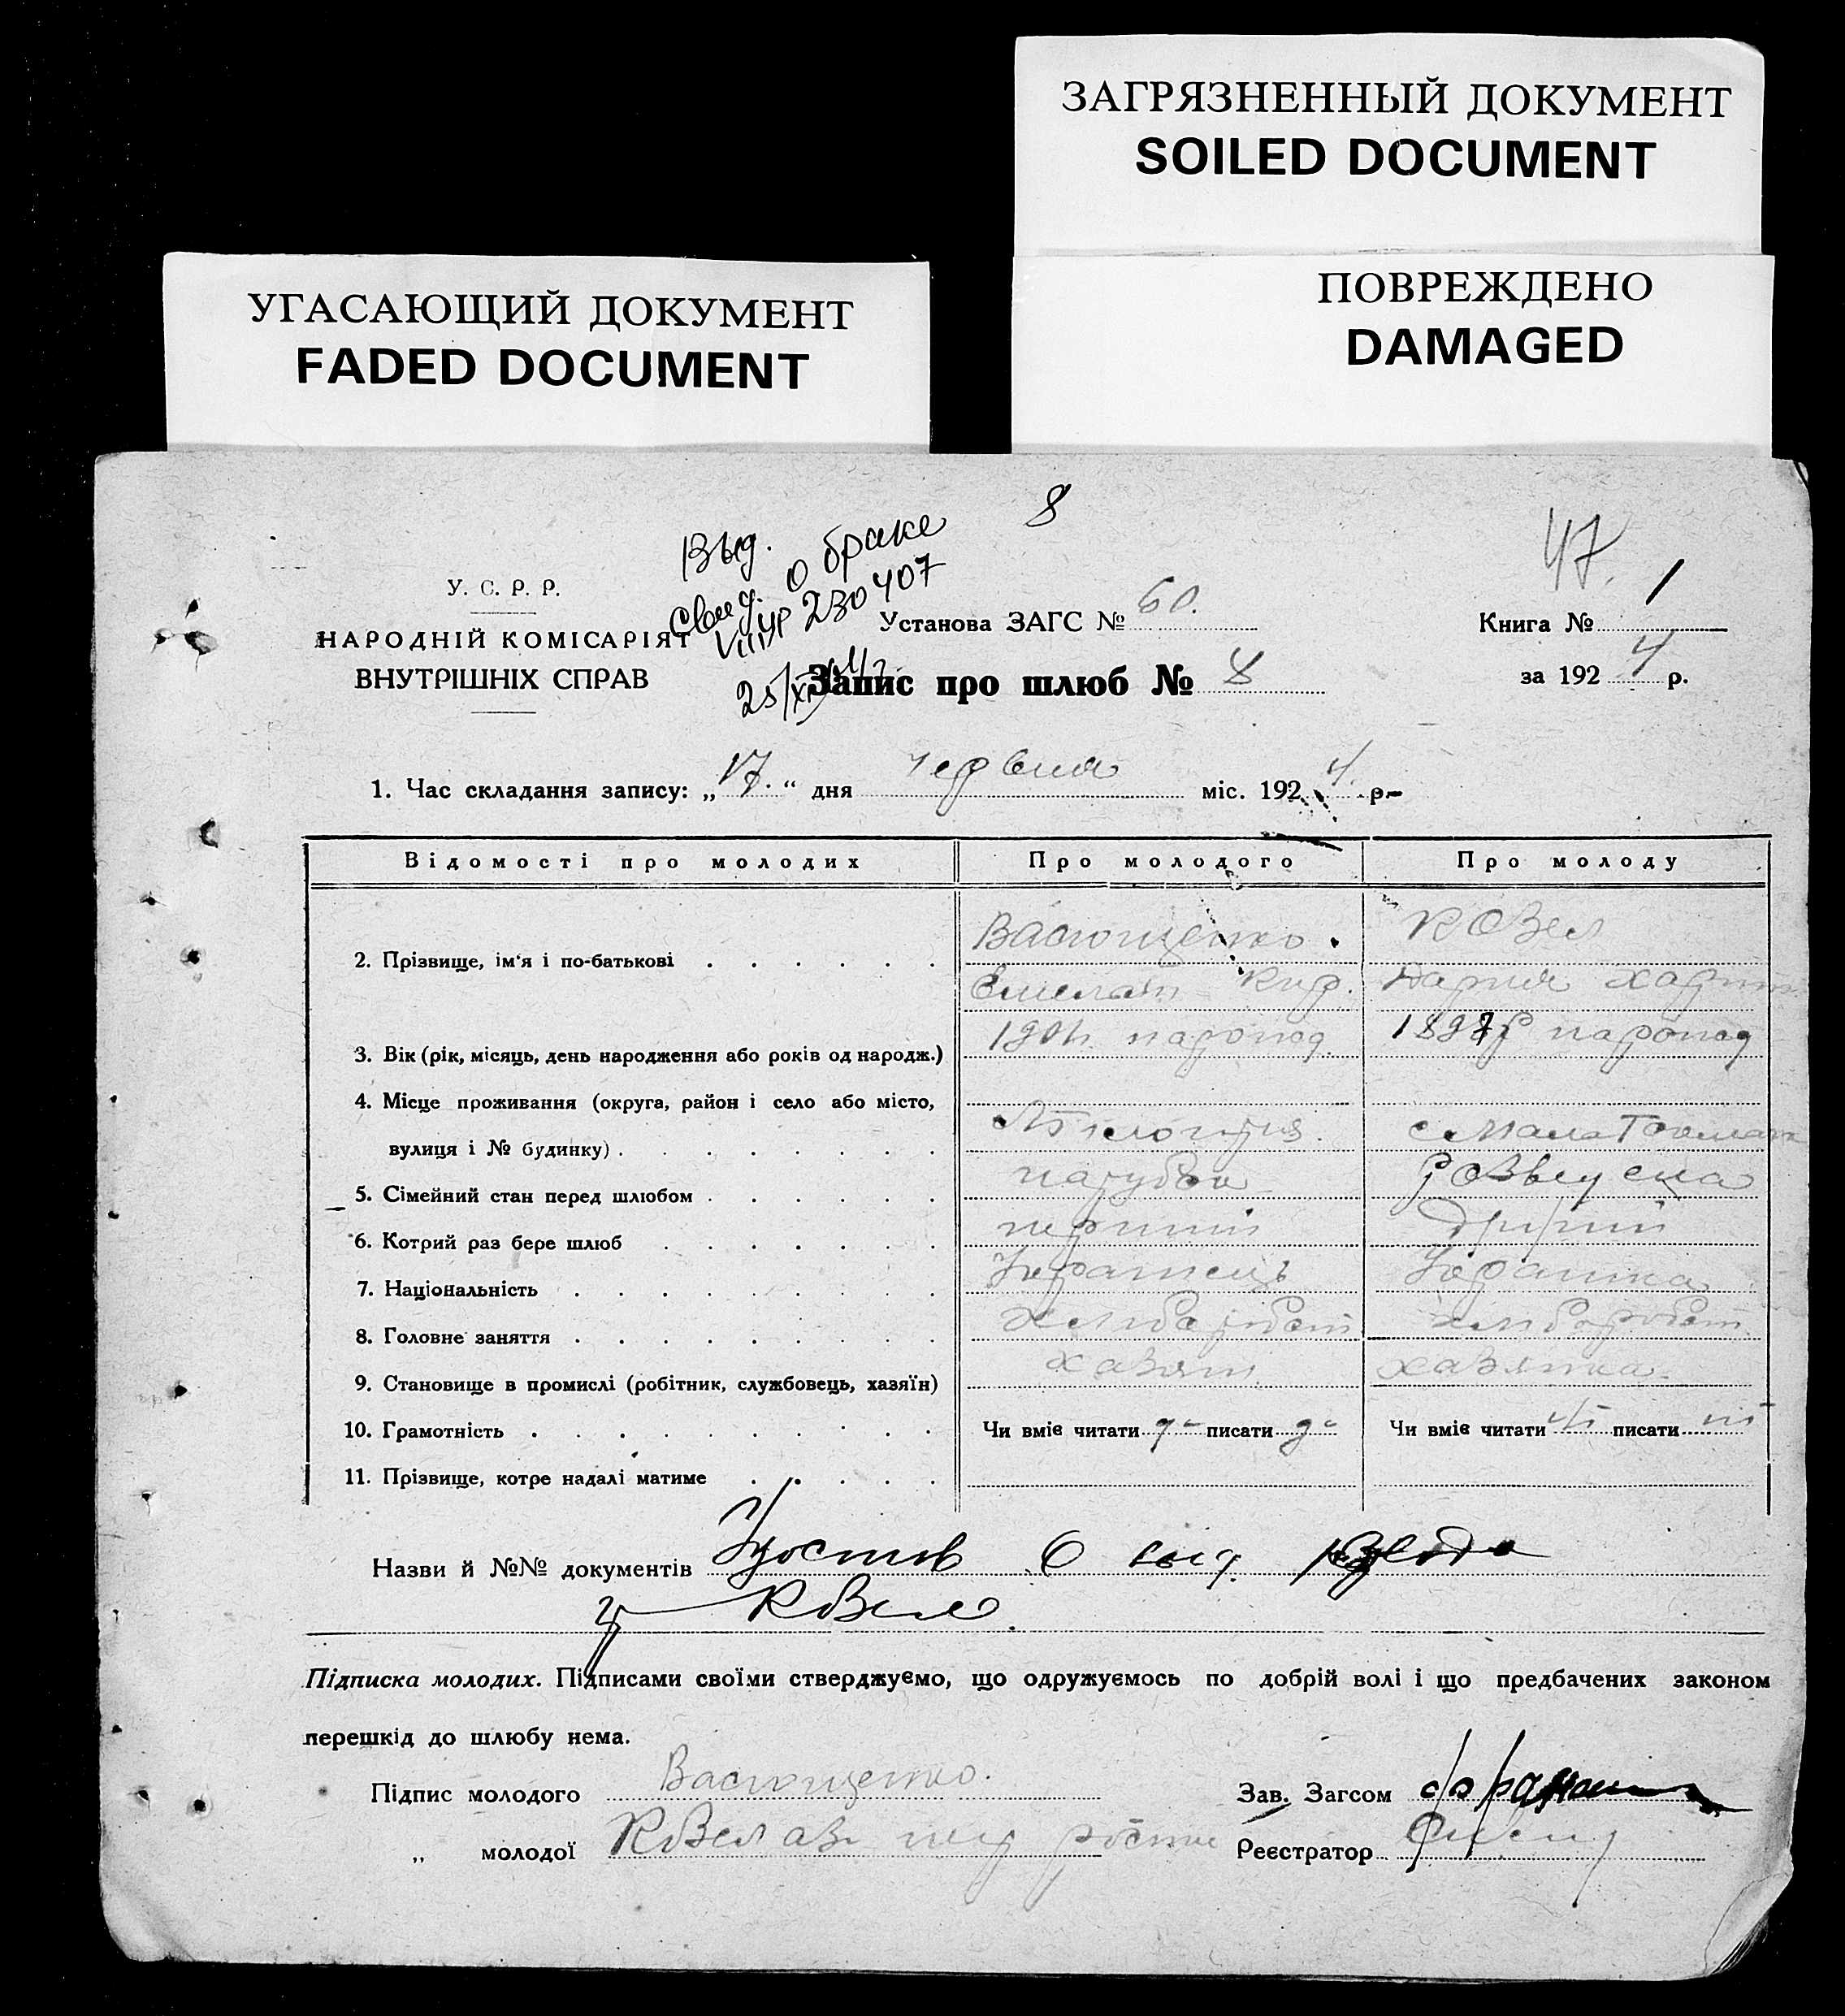 ЗАГРЯЗНЕННЫЙ ДОКУМЕНТ
SOILED DOCUMENT
УГАСАЮЩИЙ ДОКУМЕНТ
FADED DOCUMENT
ПОВРЕЖДЕНО
DAMAGED
8
47.
Выд.
о браке
230407
25/XI
У. С. Р. Р.
НАРОДНІЙ КОМІСАРІЯТ
ВНУТРІШНІХ СПРАВ
Установа ЗАГС № 60.
Книга № 1
Запис про шлюб № 8
за 1924 р.
1. Час складання запису: „17.“ дня червня міс. 1924. р.
Відомості про молодих Про молодого Про молоду
2. Прізвище, ім'я і по-батькові Васющенко. Козел
Емелян Кир. Дария Харит
3. Вік (рік, місяць, день народження або років од народж.) народ 1897 р народ
4. Місце проживання (округа, район і село або місто,
вулиця і № будинку) с Мала Токмач
5. Сімейний стан перед шлюбом парубок Розведена
6. Котрий раз бере шлюб перший Другий
7. Національність Українець Українка
8. Головне заняття хлібороб хлібороб
9. Становище в промислі (робітник, службовець, хазяїн) хазяїн хазяйка.
10. Грамотність Чи вміє читати да писати да Чи вміє читати ні писати ні
11. Прізвище, котре надалі матиме
Назви й №№ документів Удостов О
Козел.
Підписка молодих. Підписами своїми стверджуємо, що одружуємось по добрій волі і що предбачених законом
перешкід до шлюбу нема.
Підпис молодого Васющенко. Зав. Загсом
„ молодої Козел Реєстратор